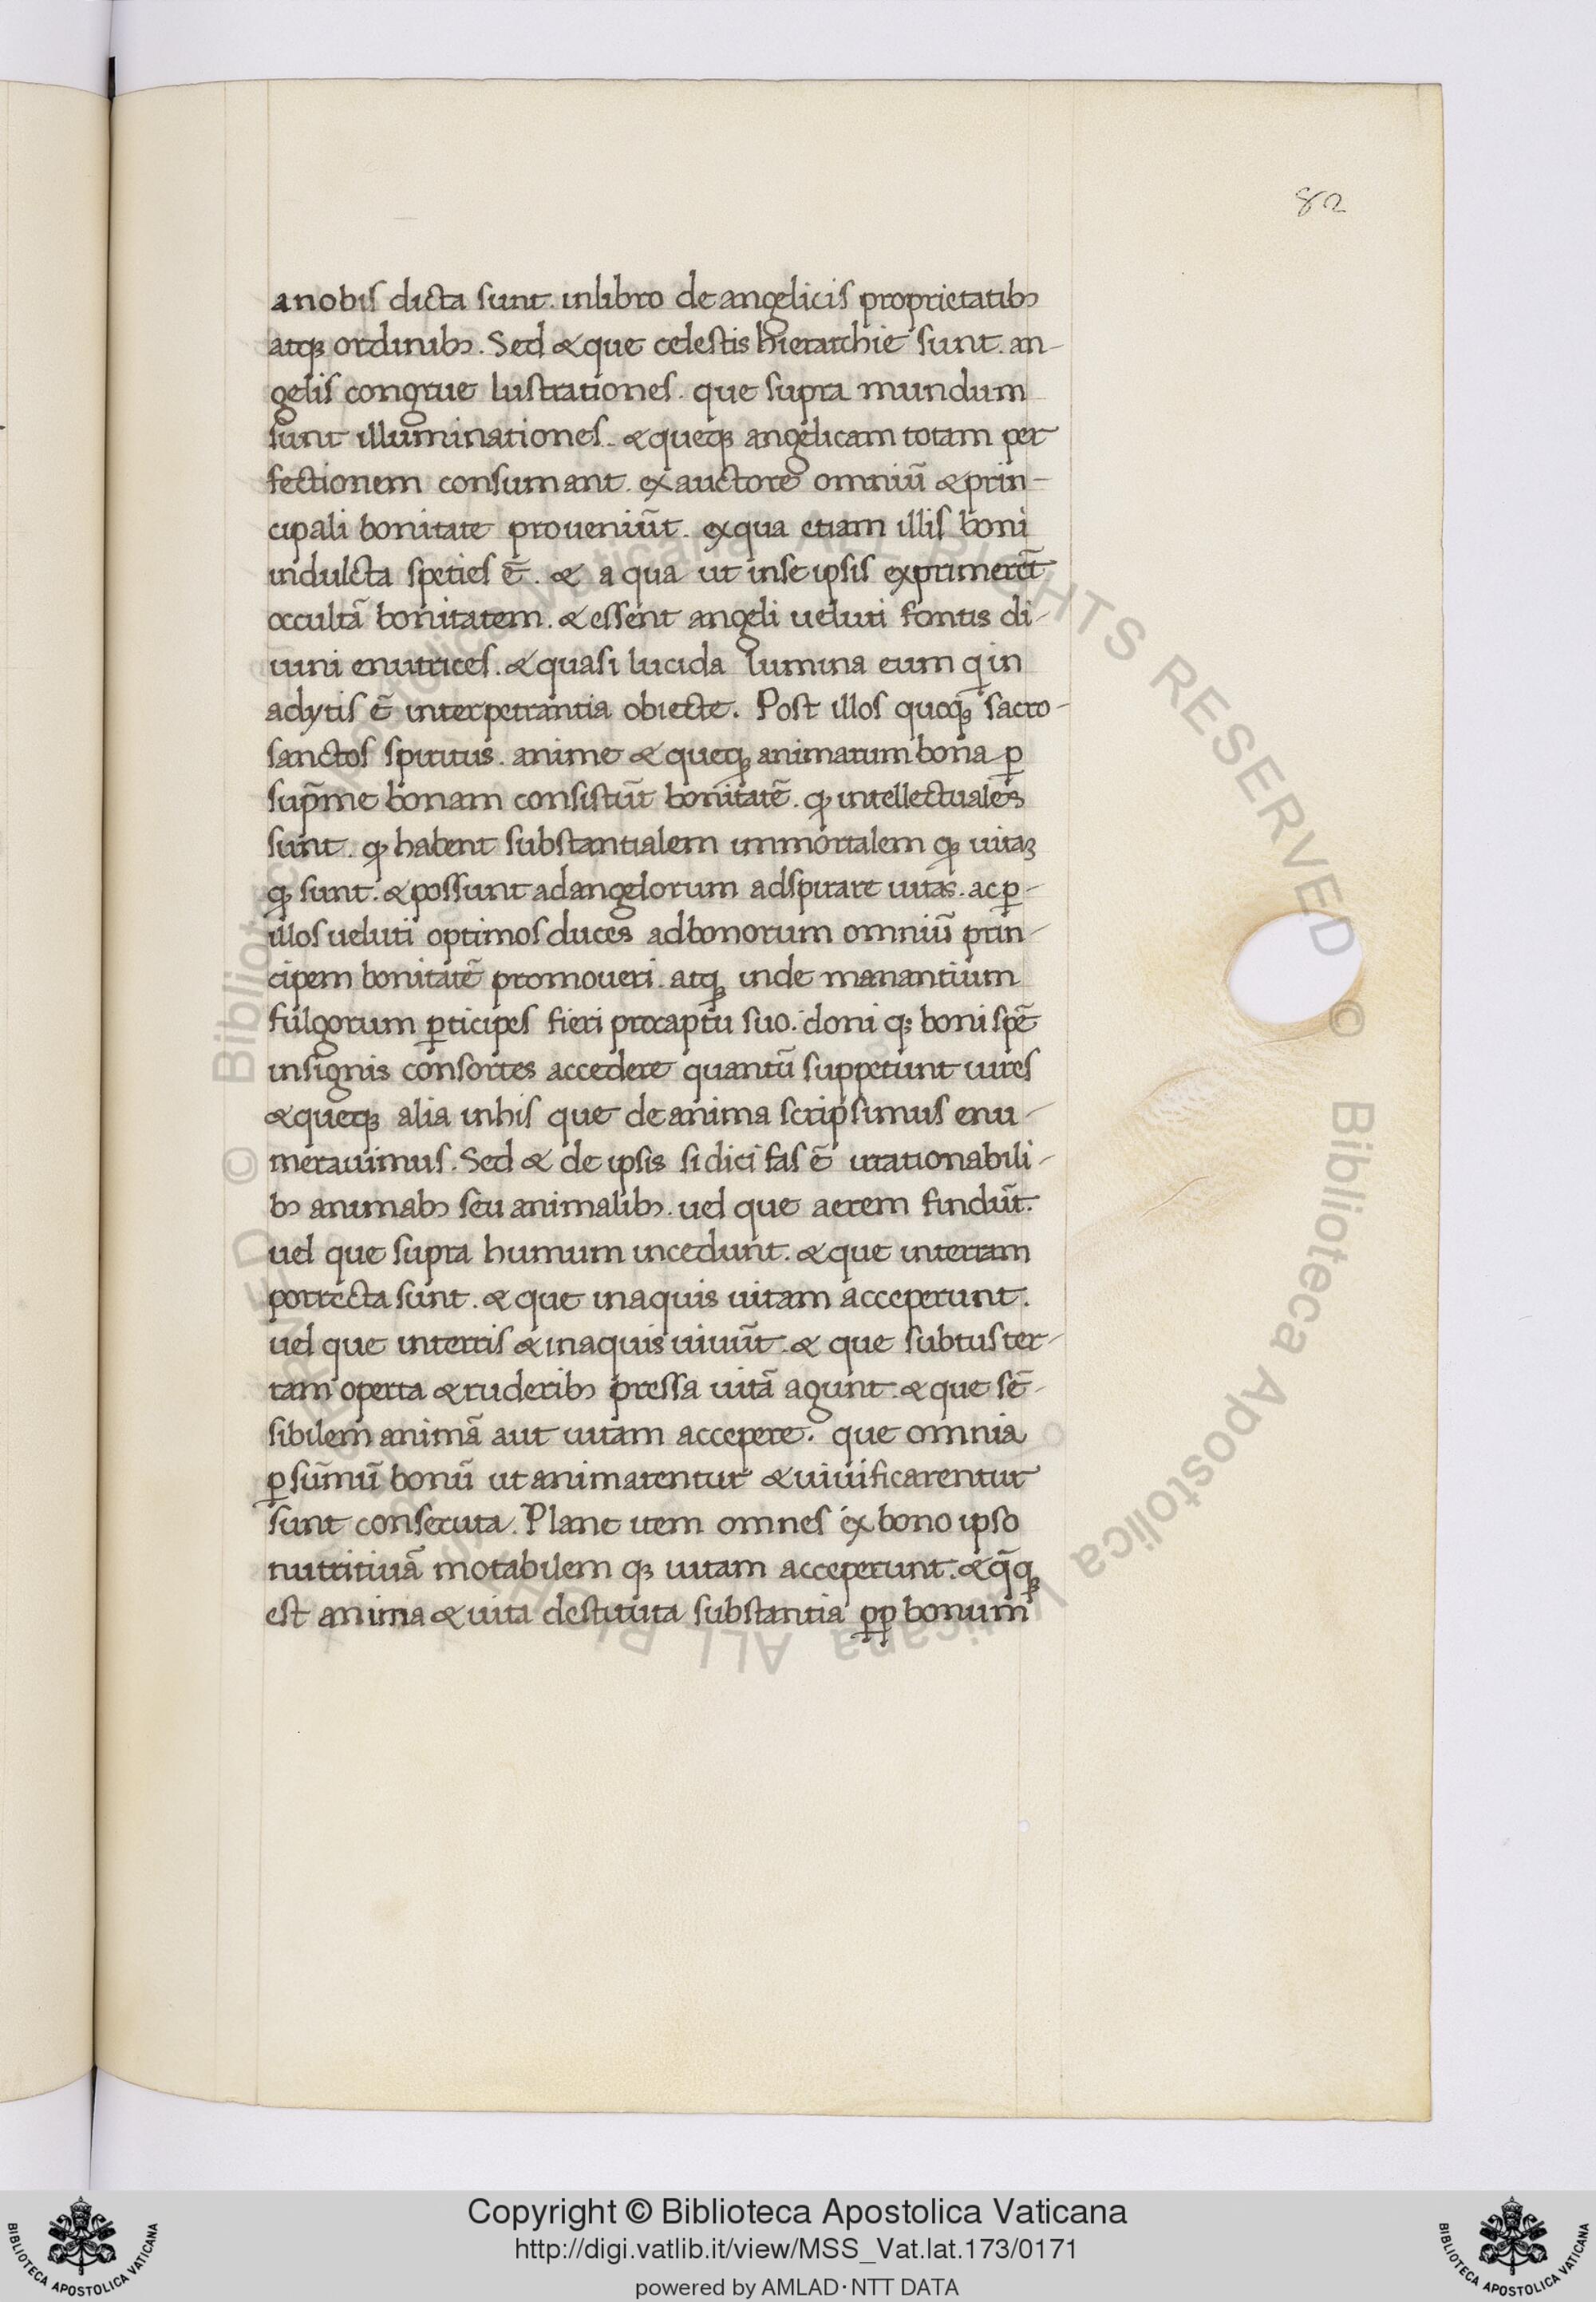 82
anobis dicta sunt. inlibro de angelicis proprietatibꝰ
atqꝫ ordinibꝰ. Sed & que celestis hierarchie sunt. an-
gelis congrue lustrationes. que supra mundum
sunt illuminationes. & queqꝫ angelicam totam per
fectionem consumant. ex auctore omniū & prin-
cipali bonitate proueniūt. exqua etiam illis boni
indulcta speties ē. & a qua ut inse ipsis exprimerēt
occultā bonitatem. & essent angeli ueluti fontis di-
uini enutrices. & quasi lucida lumina eum q in
adytis ē interpetrantia obiecte. Post illos quoqꝫ sacro-
sanctos spiritus. anime & queqꝫ animarum bona ꝑ
sup̄me bonam consistūt bonitatē. qꝫ intellectuales
sunt. qꝫ habent substantialem immortalem qꝫ uitaꝫ
qꝫ sunt. & possunt adangelorum adspirare uitas. ac ꝑ-
illos ueluti optimos duces adbonorum omniū prin-
cipem bonitatē promoueri. atqꝫ inde manantium
fulgorum ꝑticipes fieri procaptu suo. doni qꝫ boni spē
insignis consortes accedere quantū suppetunt uires
& queqꝫ alia inhis que de anima scripsimus enu-
merauimus. Sed & de ipsis si dici fas ē irrationabili-
bꝰ animabꝰ seu animalibꝰ. uel que aerem findūt.
uel que supra humum incedunt. & que interram
porrecta sunt. & que inaquis uitam acceperunt.
uel que interris & inaquis uiuūt. & que subtus ter-
ram operta & ruderibꝰ pressa uitā agunt. & que sē-
sibilem animā aut uitam accepere. que omnia
ꝑ sūmū bonū ut animarentur & uiuificarentur
sunt consecuta. Plane item omnes ex bono ipso
nutritiuā motabilem qꝫ uitam acceperunt. & q̄qꝫ
est anima & uita destituta substantia ꝓꝑ bonum
© Biblioteca Apostolica Vaticana ALL RIGHTS RESERVED
© Biblioteca Apostolica Vaticana ALL RIGHTS RESERVED
Copyright © Biblioteca Apostolica Vaticana
http://digi.vatlib.it/view/MSS_Vat.lat.173/0171
powered by AMLAD·NTT DATA
BIBLIOTECA APOSTOLICA VATICANA
BIBLIOTECA APOSTOLICA VATICANA